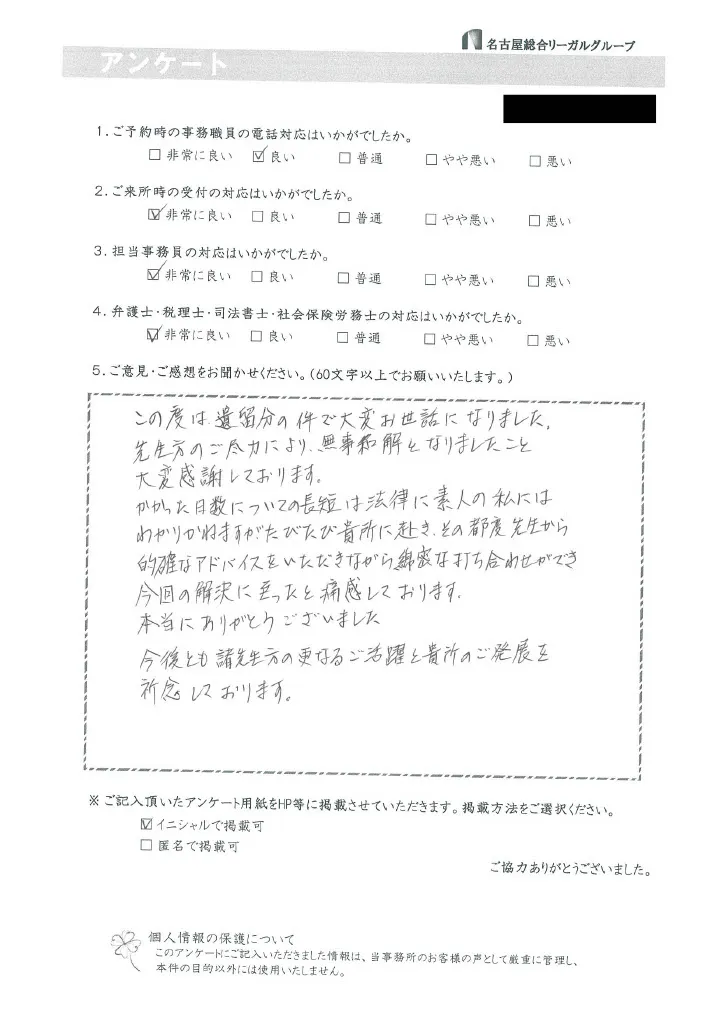 名古屋総合リーガルグループ
アンケート
1.ご予約時の事務職員の電話対応はいかがでしたか。
□ 非常に良い ☑ 良い □ 普通 □ やや悪い □ 悪い
2.ご来所時の受付の対応はいかがでしたか。
☑ 非常に良い □ 良い □ 普通 □ やや悪い □ 悪い
3.担当事務員の対応はいかがでしたか。
☑ 非常に良い □ 良い □ 普通 □ やや悪い □ 悪い
4.弁護士・税理士・司法書士・社会保険労務士の対応はいかがでしたか。
☑ 非常に良い □ 良い □ 普通 □ やや悪い □ 悪い
5.ご意見・ご感想をお聞かせください。(60文字以上でお願いいたします。)
この度は、遺留分の件で大変お世話になりました。
先生方のご尽力により、無事和解となりましたこと
大変感謝しております。
かかった日数についての長短は法律に素人の私には
わかりかねますがたびたび貴所に赴き、その都度先生から
的確なアドバイスをいただきながら綿密な打ち合わせができ
今回の解決に至ったと痛感しております。
本当にありがとうございました
今後とも諸先生方の更なるご活躍と貴所のご発展を
祈念しております。
※ご記入頂いたアンケート用紙をHP等に掲載させていただきます。掲載方法をご選択ください。
☑ イニシャルで掲載可
□ 匿名で掲載可
ご協力ありがとうございました。
個人情報の保護について
このアンケートにご記入いただきました情報は、当事務所のお客様の声として厳重に管理し、
本件の目的以外には使用いたしません。